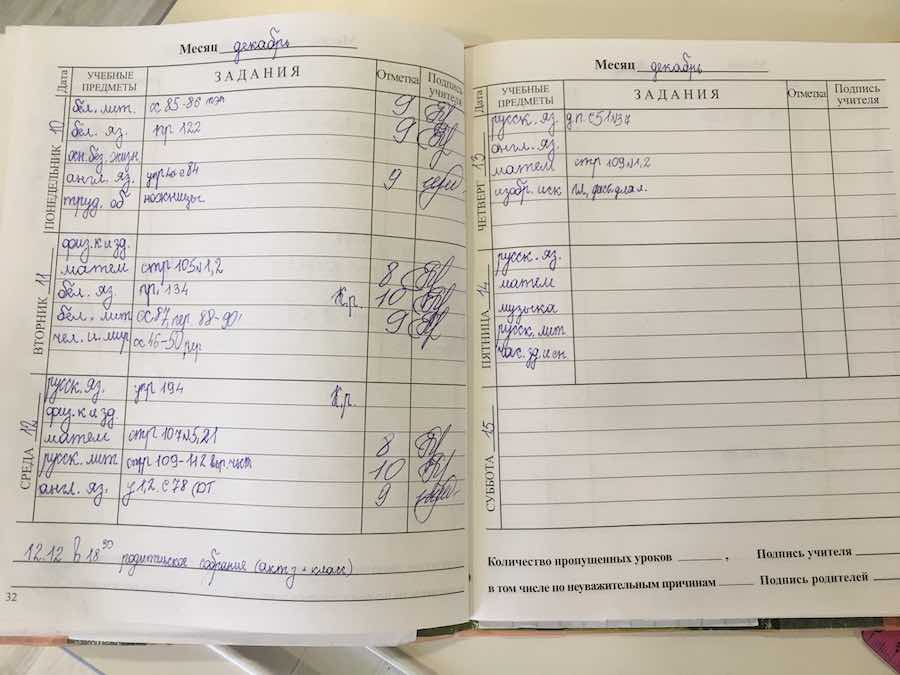 Месяц декабрь
Дата УЧЕБНЫЕ ПРЕДМЕТЫ ЗАДАНИЯ Отметка Подпись учителя
ПОНЕДЕЛЬНИК 10
бел. лит. с 85-86 9
бел. яз. пр 122 9
осн. без. жизн
англ. яз. упр с 84 9
труд. об ножницы
ВТОРНИК 11
физ. к и зд.
матем стр 105 №1,2 8
бел. яз. пр. 134 К.р. 10
бел. лит с 87, пер. 88-90 9
чел. и мир с 46-50, пер
СРЕДА 12
русск. яз. упр 194 К.р.
физ. к и зд.
матем стр 107 №5, 21 8
русск. лит стр 109-112 10
англ. яз. у 1,2 с 78 9
12.12 в 18 30 родительское собрание (акт з + класс)
32
Месяц декабрь
Дата УЧЕБНЫЕ ПРЕДМЕТЫ ЗАДАНИЯ Отметка Подпись учителя
ЧЕТВЕРГ 13
русск. яз. д.п. с 51 №37
англ. яз.
матем стр 109 №1,2
изобр. иск
ПЯТНИЦА 14
русск. яз.
матем
музыка
русск. лит
час. зд. и сн.
СУББОТА 15
Количество пропущенных уроков , Подпись учителя
в том числе по неуважительным причинам Подпись родителей